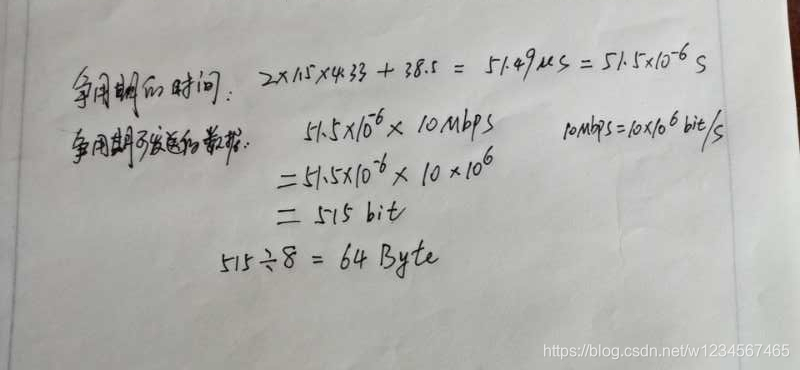 争用期的时间: 2×1.5×4.33 + 38.5 = 51.49 μs = 51.5×10⁻⁶ s
争用期可发送的数据: 51.5×10⁻⁶ × 10 Mbps 10Mbps = 10×10⁶ bit/s
= 51.5×10⁻⁶ × 10 × 10⁶
= 515 bit
515 ÷ 8 = 64 Byte
https://blog.csdn.net/w1234567465